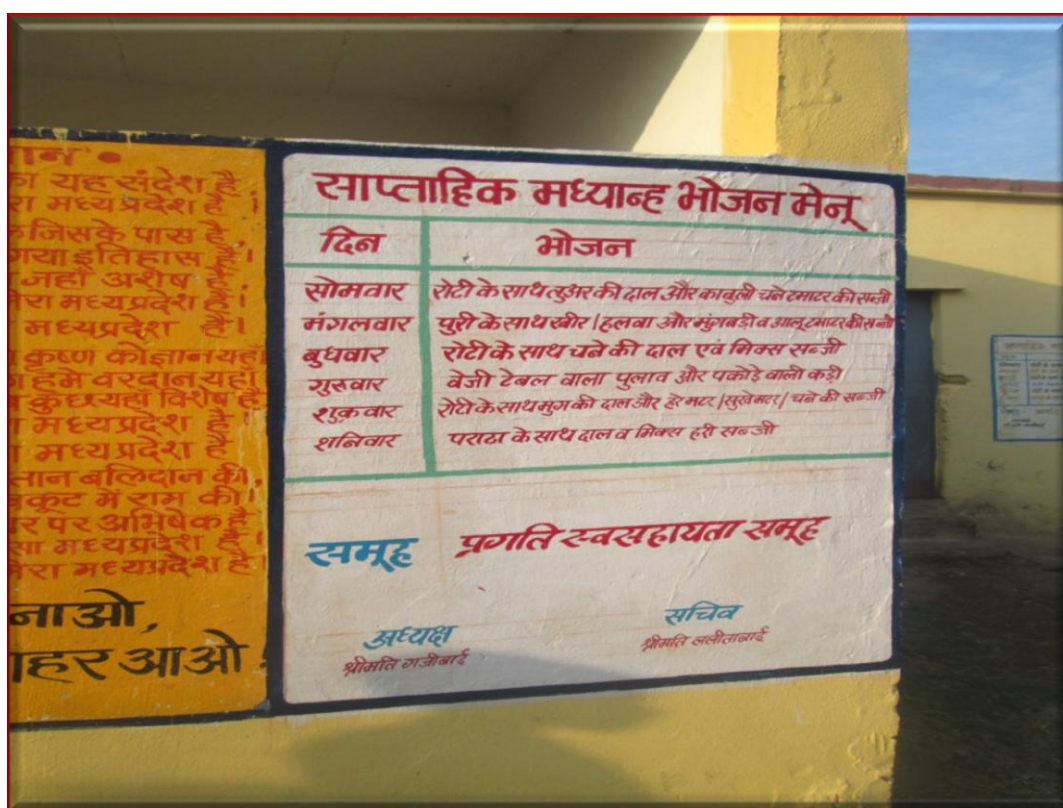 का यह संदेश है
मध्यप्रदेश है ।
जिसके पास है,
गया इतिहास है ।
जहाँ अशेष है
मेरा मध्यप्रदेश है ।
मध्यप्रदेश है ।
कृष्ण को ज्ञान यहाँ
हमे वरदान यहाँ
कुछ यहाँ विशेष है
मध्यप्रदेश है ।
मध्यप्रदेश है
बलिदान की,
में राम की ।
पर अभिषेक है
मध्यप्रदेश है ।
मध्यप्रदेश है ।
नाओ,
आओ
साप्ताहिक मध्यान्ह भोजन मेनू
दिन भोजन
सोमवार रोटी के साथ तुअर की दाल और काबुली चने टमाटर की सब्जी
मंगलवार पुरी के साथ खीर / हलवा और मुंगबडी व आलू टमाटर की सब्जी
बुधवार रोटी के साथ चने की दाल एवं मिक्स सब्जी
गुरुवार वेजी टेबल वाला पुलाव और पकोडे वाली कड़ी
शुक्रवार रोटी के साथ मुग की दाल और हरे मटर / सुखे मटर / चने की सब्जी
शनिवार पराठा के साथ दाल व मिक्स हरी सब्जी
समूह प्रगति स्वसहायता समूह
अध्यक्ष सचिव
श्रीमति गजीबाई श्रीमति ललीताबाई